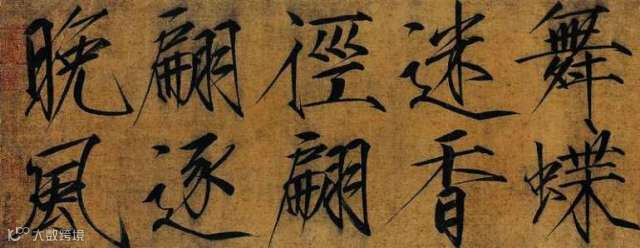 舞蝶
迷香
徑翩
翩逐
晚風
大数跨境